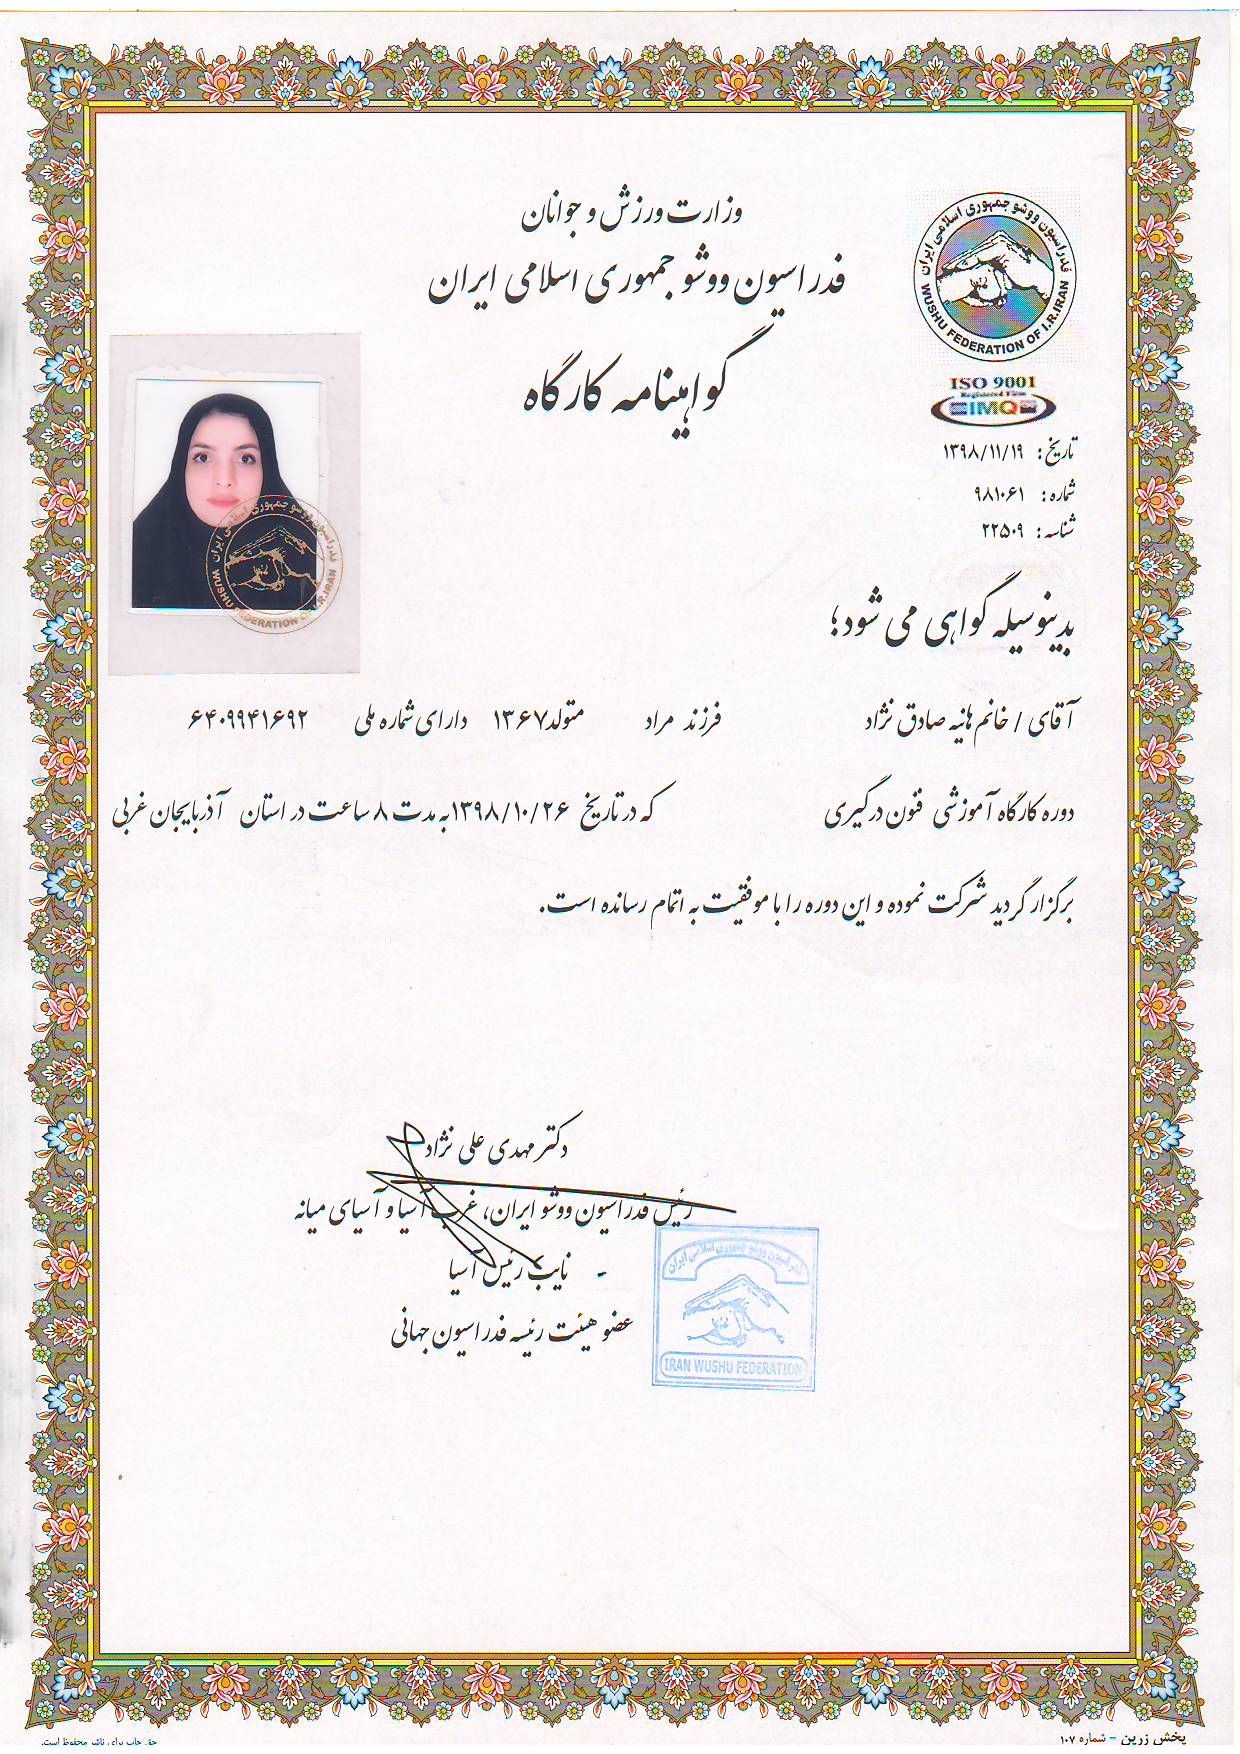 وزارت ورزش و جوانان
فدراسیون ووشو جمهوری اسلامی ایران
گواهینامه کارگاه
فدراسیون ووشو جمهوری اسلامی ایران
WUSHU FEDERATION OF I.R.IRAN
ISO 9001
Registered Firm
IMQ
تاریخ: ۱۳۹۸/۱۱/۱۹
شماره: ۹۸۱۰۶۱
شناسه: ۲۲۵۰۹
فدراسیون ووشو جمهوری اسلامی ایران
WUSHU FEDERATION I.R.IRAN
بدینوسیله گواهی می شود؛
آقای / خانم هانیه صادق نژاد فرزند مراد متولد ۱۳۶۷ دارای شماره ملی ۶۴۰۹۹۴۱۶۹۲
دوره کارگاه آموزشی فنون درگیری که در تاریخ ۱۳۹۸/۱۰/۲۶ به مدت ۸ ساعت در استان آذربایجان غربی
برگزار گردید شرکت نموده و این دوره را با موفقیت به اتمام رسانده است.
دکتر مهدی علی نژاد
رئیس فدراسیون ووشو ایران، غرب آسیا و آسیای میانه
- نایب رئیس آسیا
عضو هیئت رئیسه فدراسیون جهانی
فدراسیون ووشو جمهوری اسلامی ایران
IRAN WUSHU FEDERATION
پخش زرین - شماره ۱۰۷
حق چاپ برای ناشر محفوظ است.